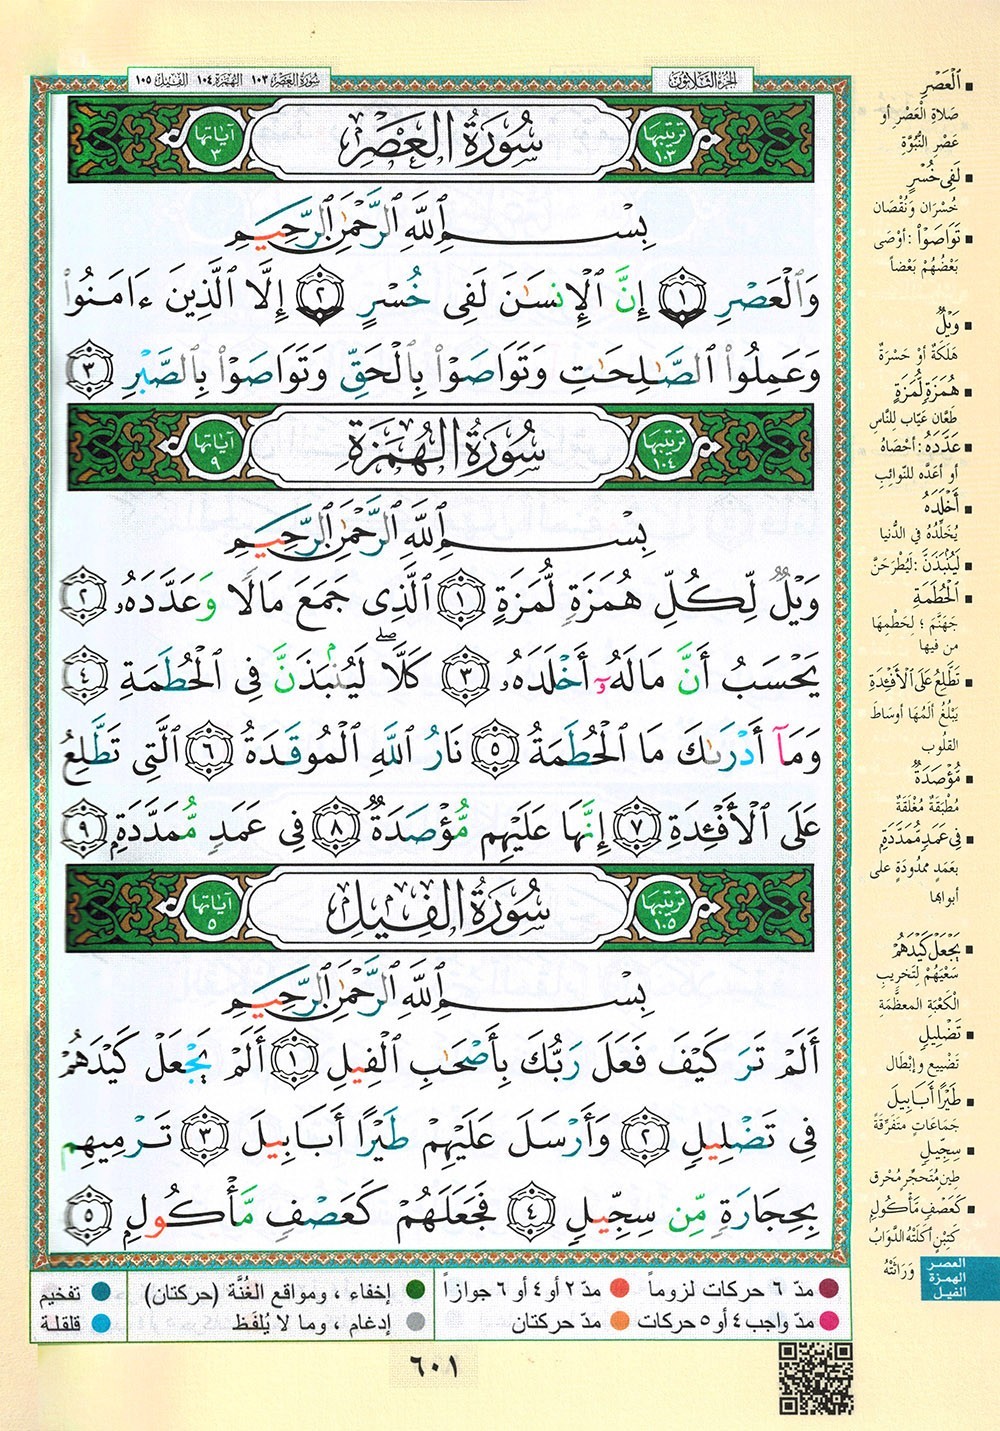 الجزء الثلاثون
سورة العصر ١٠٣ الهمزة ١٠٤ الفيل ١٠٥
ترتيبها ١٠٣ سُورَةُ العَصْرِ آياتها ٣
بِسْمِ ٱللَّهِ ٱلرَّحْمَٰنِ ٱلرَّحِيمِ
وَٱلْعَصْرِ ١ إِنَّ ٱلْإِنسَٰنَ لَفِى خُسْرٍ ٢ إِلَّا ٱلَّذِينَ ءَامَنُوا۟
وَعَمِلُوا۟ ٱلصَّٰلِحَٰتِ وَتَوَاصَوْا۟ بِٱلْحَقِّ وَتَوَاصَوْا۟ بِٱلصَّبْرِ ٣
ترتيبها ١٠٤ سُورَةُ الهُمَزَةِ آياتها ٩
بِسْمِ ٱللَّهِ ٱلرَّحْمَٰنِ ٱلرَّحِيمِ
وَيْلٌ لِّكُلِّ هُمَزَةٍ لُّمَزَةٍ ١ ٱلَّذِى جَمَعَ مَالًا وَعَدَّدَهُۥ ٢
يَحْسَبُ أَنَّ مَالَهُۥٓ أَخْلَدَهُۥ ٣ كَلَّا ۖ لَيُنۢبَذَنَّ فِى ٱلْحُطَمَةِ ٤
وَمَآ أَدْرَىٰكَ مَا ٱلْحُطَمَةُ ٥ نَارُ ٱللَّهِ ٱلْمُوقَدَةُ ٦ ٱلَّتِى تَطَّلِعُ
عَلَى ٱلْأَفْـِٔدَةِ ٧ إِنَّهَا عَلَيْهِم مُّؤْصَدَةٌ ٨ فِى عَمَدٍ مُّمَدَّدَةٍۭ ٩
ترتيبها ١٠٥ سُورَةُ الفِيلِ آياتها ٥
بِسْمِ ٱللَّهِ ٱلرَّحْمَٰنِ ٱلرَّحِيمِ
أَلَمْ تَرَ كَيْفَ فَعَلَ رَبُّكَ بِأَصْحَٰبِ ٱلْفِيلِ ١ أَلَمْ يَجْعَلْ كَيْدَهُمْ
فِى تَضْلِيلٍ ٢ وَأَرْسَلَ عَلَيْهِمْ طَيْرًا أَبَابِيلَ ٣ تَرْمِيهِم
بِحِجَارَةٍ مِّن سِجِّيلٍ ٤ فَجَعَلَهُمْ كَعَصْفٍ مَّأْكُولٍۭ ٥
▪ ٱلْعَصْرِ
صَلاةِ الْعَصْرِ أو
عَصْرِ النُّبُوَّةِ
▪ لَفِى خُسْرٍ
خُسْرَانٍ وَنُقْصَان
▪ تَوَاصَوْا۟ : أَوْصَى
بَعْضُهُمْ بَعْضاً
▪ وَيْلٌ
هَلَكَةٌ أوْ حَسْرَةٌ
▪ هُمَزَةٍ لُّمَزَةٍ
طَعَّان عَيَّاب للنَّاسِ
▪ عَدَّدَهُۥ : أَحْصَاهُ
أو أَعَدَّه للنَّوائِبِ
▪ أَخْلَدَهُۥ
يُخَلِّدُهُ فِي الدُّنيا
▪ لَيُنۢبَذَنَّ : لَيُطْرَحَنَّ
▪ ٱلْحُطَمَةِ
جَهَنَّمَ ؛ لِحَطْمِهَا
من فيها
▪ تَطَّلِعُ عَلَى ٱلْأَفْـِٔدَةِ
يَبْلُغُ أَلَمُهَا أوسَاطَ
القلُوب
▪ مُّؤْصَدَةٌ
مُطْبَقَةٌ مُغْلَقَةٌ
▪ فِى عَمَدٍ مُّمَدَّدَةٍ
بعَمَدٍ مَمْدُودَةٍ على
أبوابِها
▪ يَجْعَلْ كَيْدَهُمْ
سَعْيَهُمْ لِتَخْرِيبِ
الْكَعْبَةِ المعظَّمَةِ
▪ تَضْلِيلٍ
تَضْيِيعٍ وإبْطَال
▪ طَيْرًا أَبَابِيلَ
جَمَاعَاتٍ مُتَفَرِّقَةً
▪ سِجِّيلٍ
طِينٍ مُتَحَجِّرٍ مُحْرَق
▪ كَعَصْفٍ مَّأْكُولٍ
كَتِبْنٍ أَكَلَتْهُ الدَّوَابُّ
وَرَاثَتْهُ
العصر
الهمزة
الفيل
مدّ ٦ حركات لزوماً مدّ ٢ أو ٤ أو ٦ جوازاً إخفاء ، ومواقع الغُنَّة (حركتان) تفخيم
مدّ واجب ٤ أو ٥ حركات مدّ حركتان إدغام ، وما لا يُلفَظ قلقلة
٦٠١